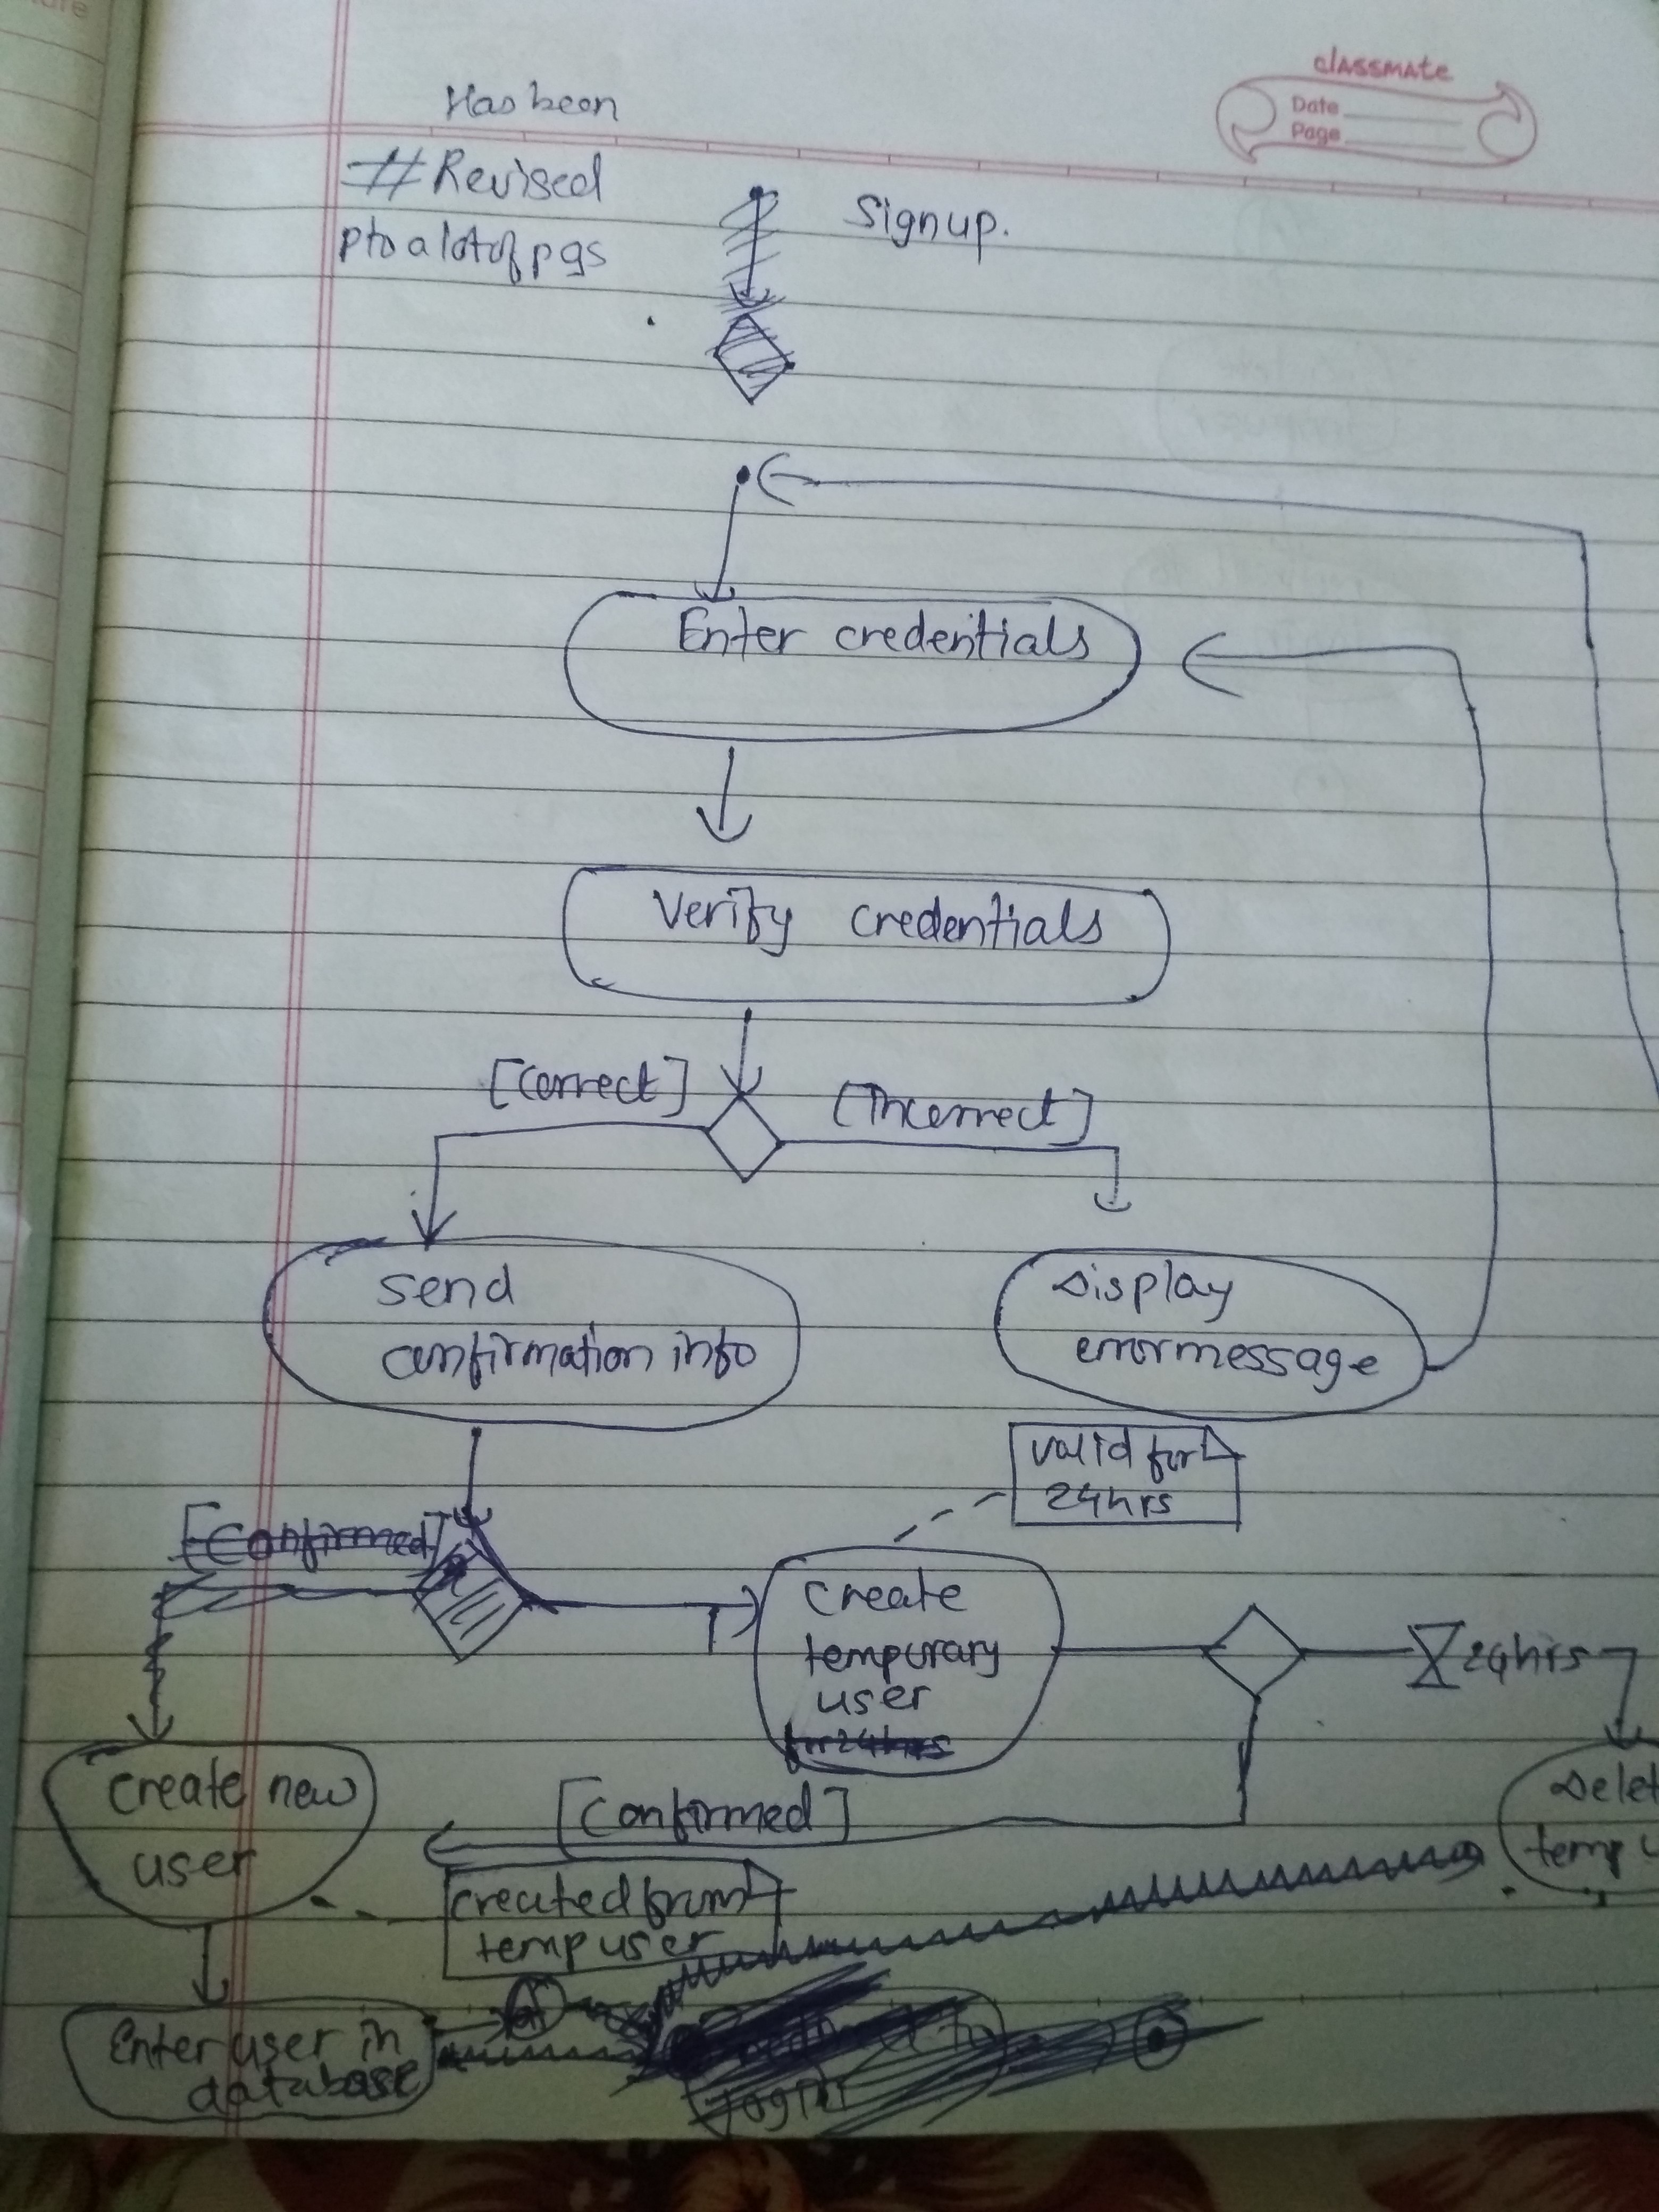 classmate
Date
Page
Has been
#Revised
pto a lot of pgs
Signup.
Enter credentials
Verify credentials
[Correct]
[Incorrect]
Send
confirmation info
Display
error message
Valid for
24hrs
[Confirmed]
Create
tempurary
user
for 24hrs
24hrs
Create new
user
[Confirmed]
Delet
temp u
created from
temp user
Enter user in
database
login